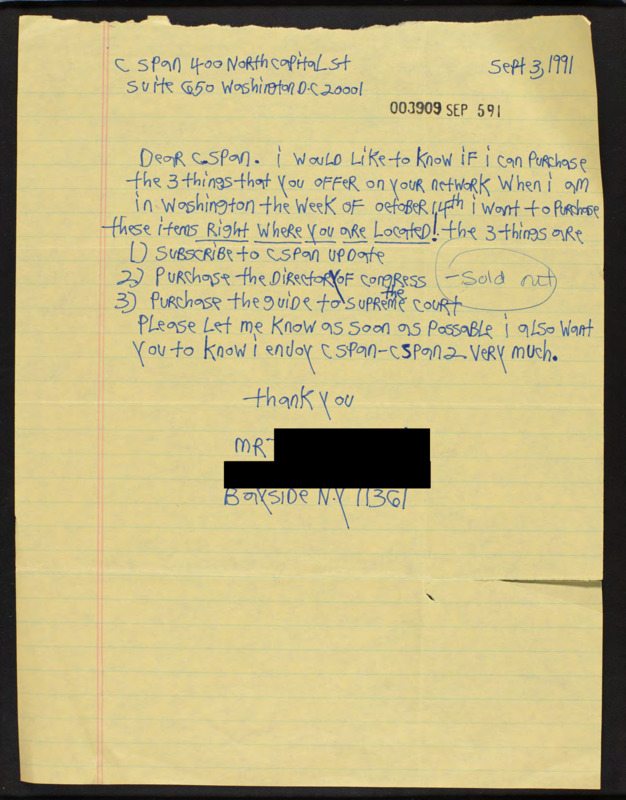 C SPAN 400 North Capital St
Sept 3, 1991
Suite 650 Washington D.C 20001
003909 SEP 591
Dear C.SPAN. i would like to know if i can purchase
the 3 things that you offer on your network when i am
in Washington the week of october 14th i want to purchase
these items Right Where You are Located! the 3 things are
1) Subscribe to CSPAN update
2) Purchase the Directory of congress - Sold out
3) Purchase the guide to the supreme court
Please Let me know as soon as possable i also want
you to know i endoy C SPAN-CSPAN2 very much.
thank you
MR
Bayside N.Y 11361